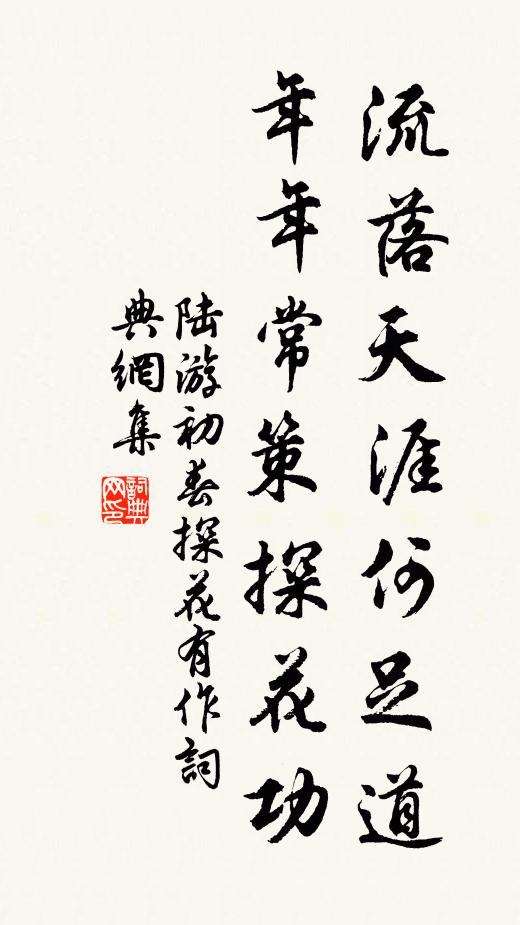 流落天涯何足道
年年常策探花功
陆游初春探花有作詞
典網集
詞典网印